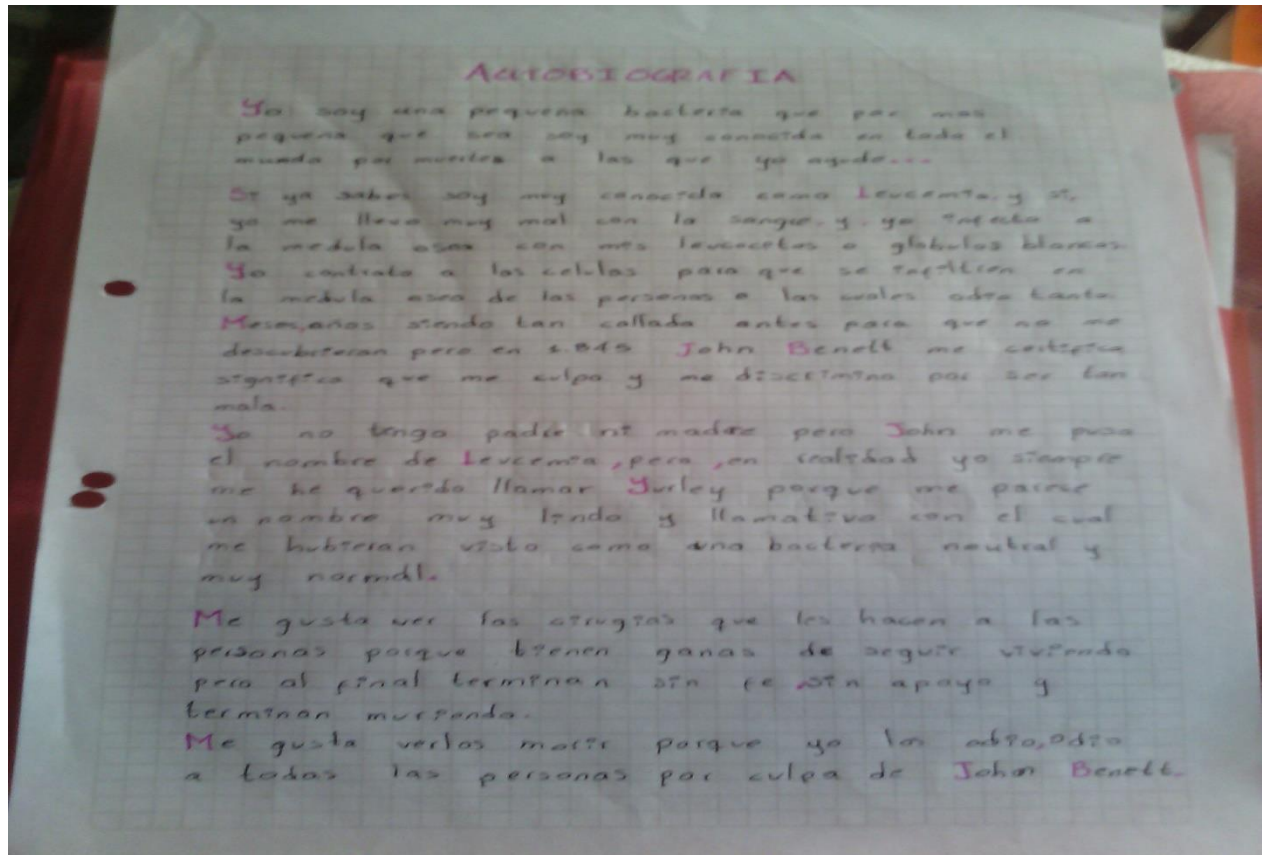 AUTOBIOGRAFIA
Yo soy una pequeña bacteria que por mas
pequeña que sea soy muy conocida en todo el
mundo por muertes a las que yo ayudo...
Si ya sabes soy muy conocida como Leucemia y si,
yo me llevo muy mal con la sangre y yo infecto a
la medula osea con mis leucocetos o globulos blancos.
Yo contrato a las celulas para que se infiltren en
la medula osea de las personas a las cuales odio tanto.
Meses, años siendo tan callada antes para que no me
descubrieran pero en 1.845 John Benett me certifica
significa que me culpa y me discrimina por ser tan
mala.
Yo no tengo padre ni madre pero John me puso
el nombre de Leucemia, pero, en realidad yo siempre
me he querido llamar Yurley porque me parece
un nombre muy lindo y llamativo con el cual
me hubieran visto como una bacteria neutral y
muy normal.
Me gusta ver las cirugias que les hacen a las
personas porque tienen ganas de seguir viviendo
pero al final terminan sin fe, sin apoyo y
terminan muriendo.
Me gusta verlos morir porque yo los odio, odio
a todas las personas por culpa de John Benett.